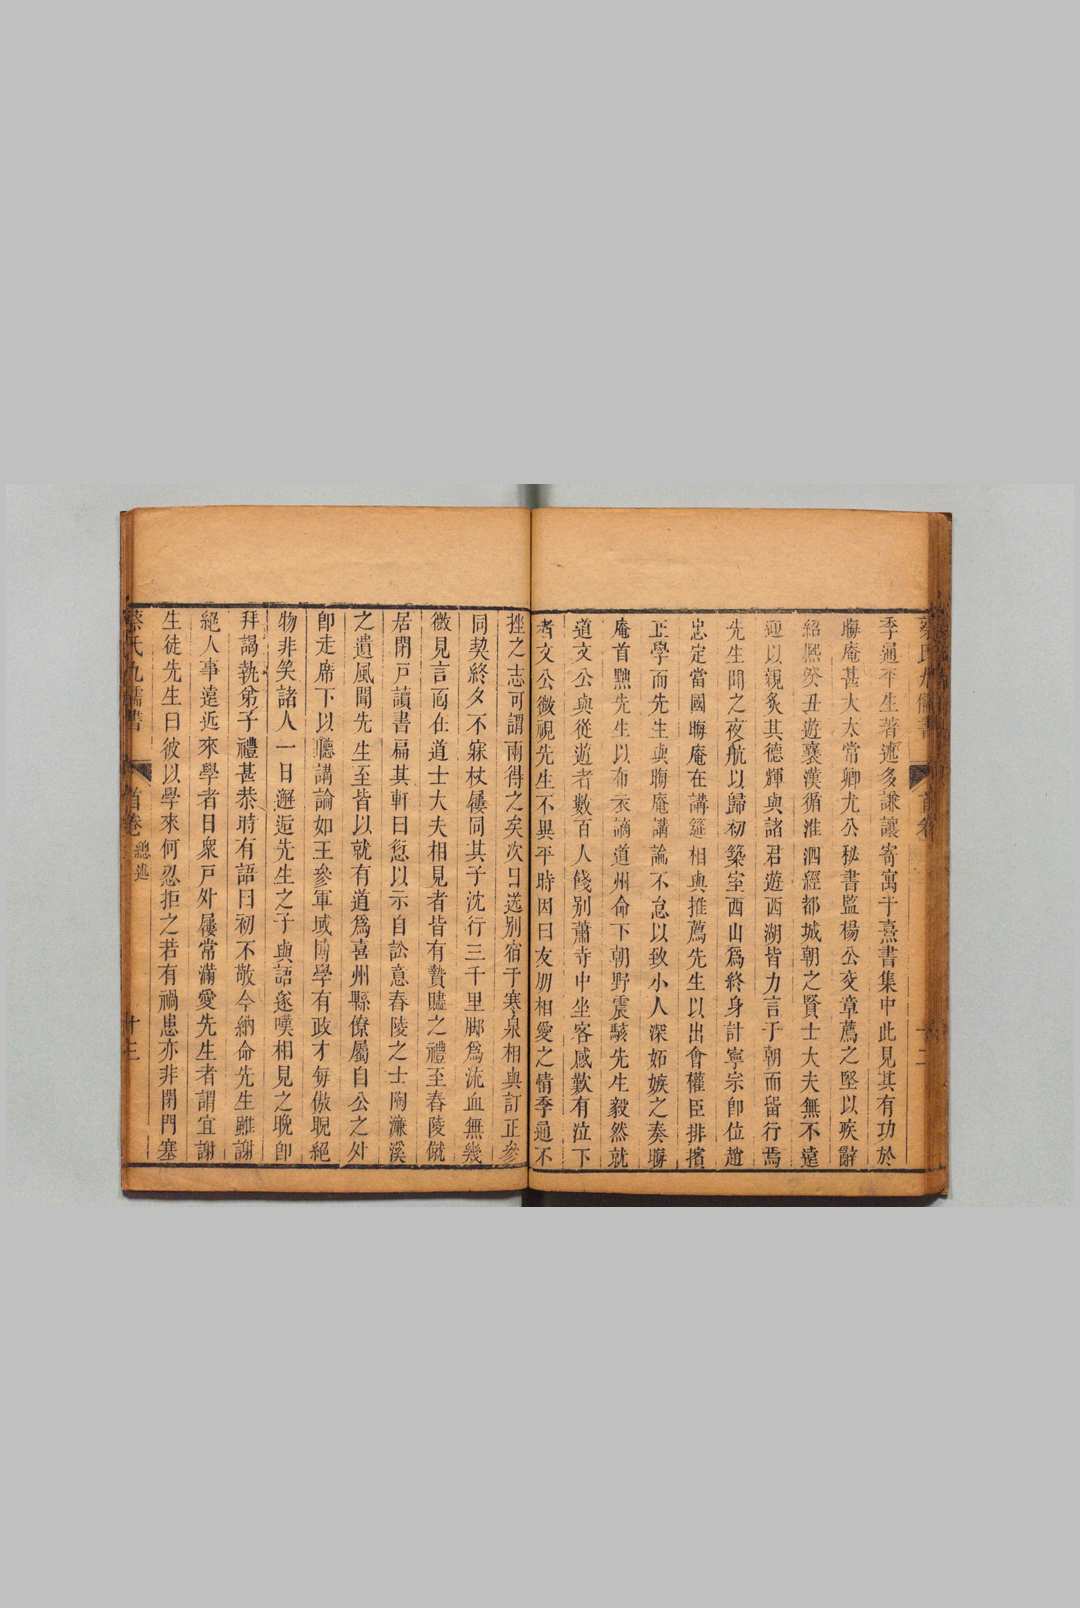 季通平生著述多謙讓寄寓于熹書集中此見其有功於
晦庵甚大太常卿尤公秘書監楊公交章薦之堅以疾辭
紹熙癸丑遊襄漢循淮泗經都城朝之賢士大夫無不遠
迎以親炙其德輝與諸君遊西湖皆力言于朝而留行焉
先生聞之夜航以歸初築室西山爲終身計寧宗卽位趙
忠定當國晦庵在講筵相與推薦先生以出會權臣排擯
正學而先生與晦庵講論不怠以致小人深妬嫉之奏晦
庵首黜先生以布衣謫道州命下朝野震駭先生毅然就
道文公與從遊者數百人餞別蕭寺中坐客感歎有泣下
者文公微視先生不異平時因曰友朋相愛之情季通不
挫之志可謂兩得之矣次日送別宿于寒泉相與訂正參
同契終夕不寐杖屨同其子沈行三千里脚爲流血無幾
微見言面在道士大夫相見者皆有贄贐之禮至舂陵僦
居閉戸讀書扁其軒曰愆以示自訟意舂陵之士陶濂溪
之遺風聞先生至皆以就有道爲喜州縣僚屬自公之外
卽走席下以聽講論如王參軍或博學有政才每傲睨絕
物非笑諸人一日邂逅先生之子與語遂嘆相見之晚卽
拜謁執弟子禮甚恭時有語曰初不敬今納命先生雖謝
絕人事遠近來學者日衆戸外屨常滿愛先生者謂宜謝
生徒先生曰彼以學來何忍拒之若有禍患亦非閉門塞
蔡氏九儒書
首卷 總述
十三